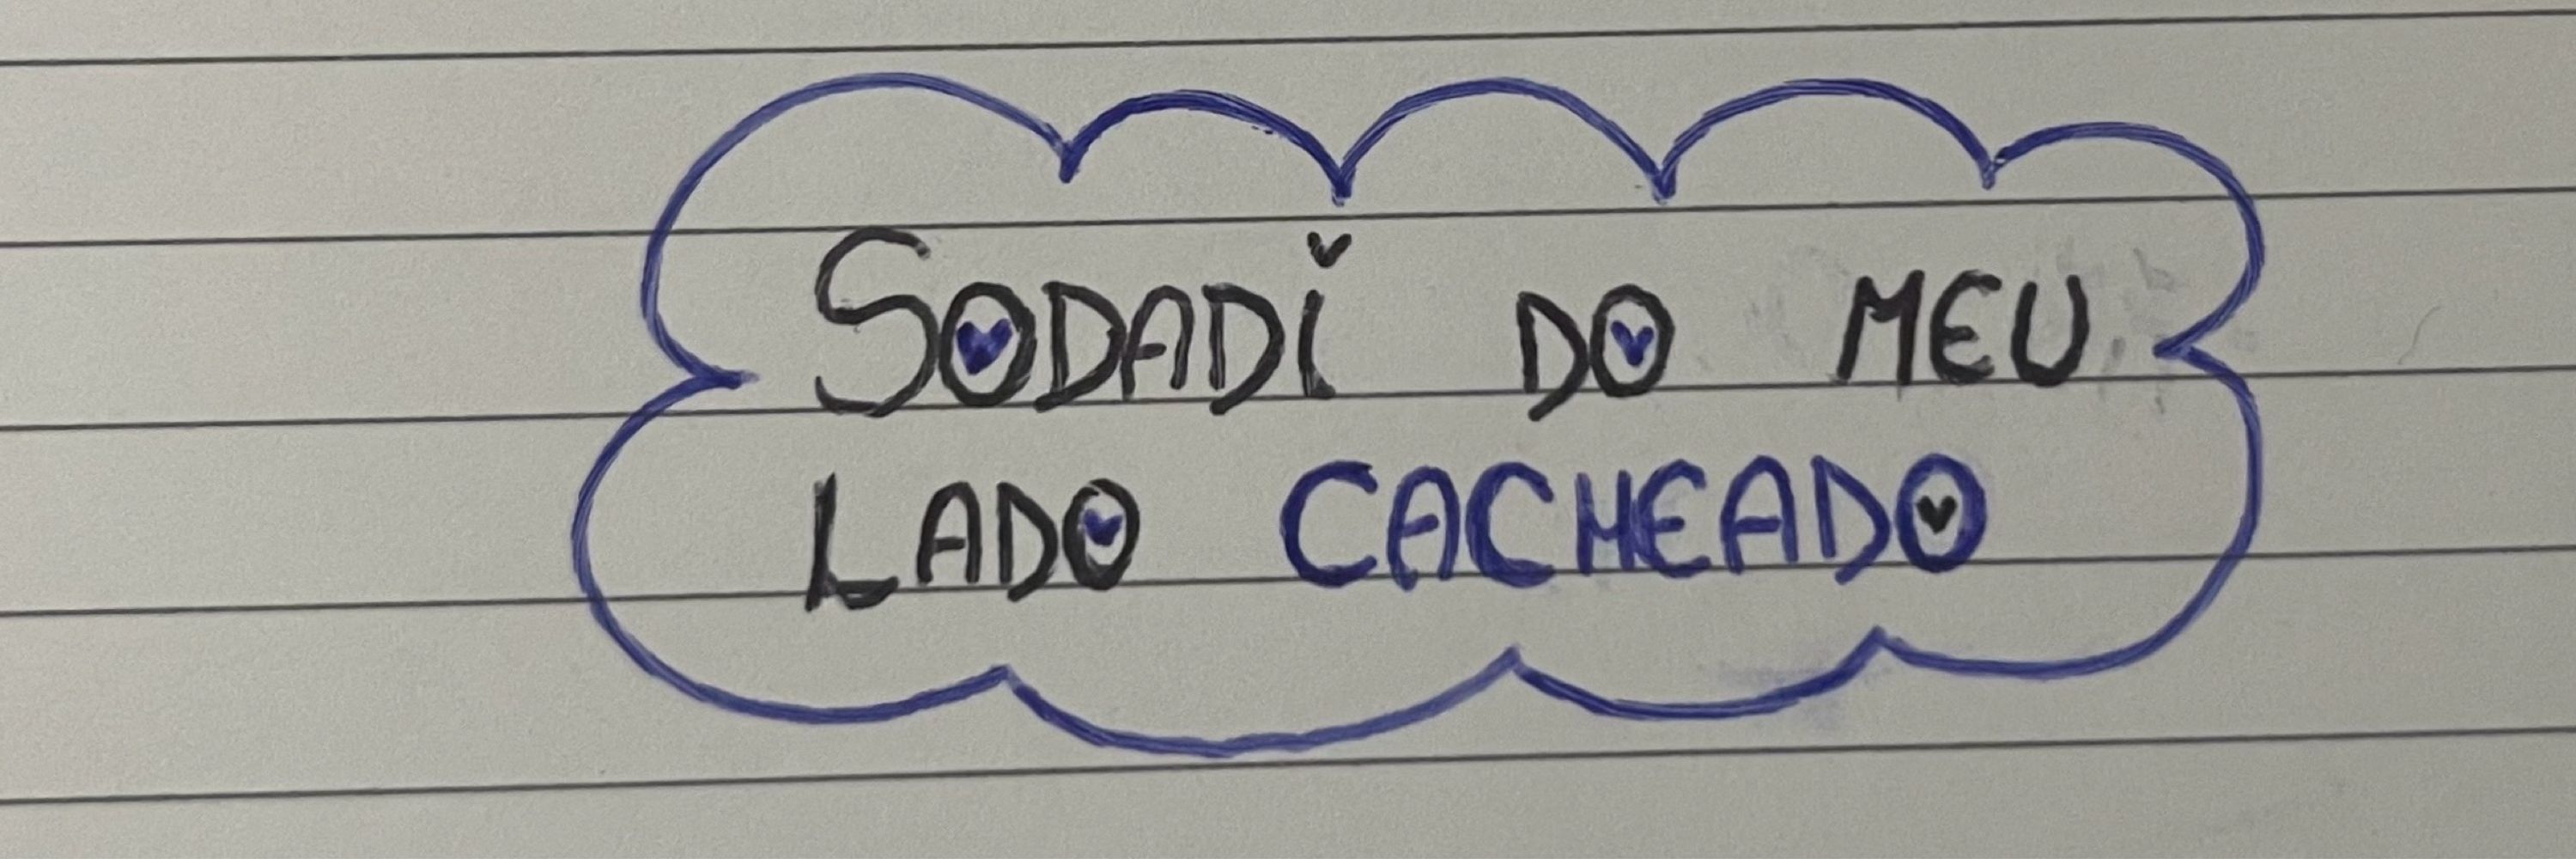 SODADi DO MEU
LADO CACHEADO